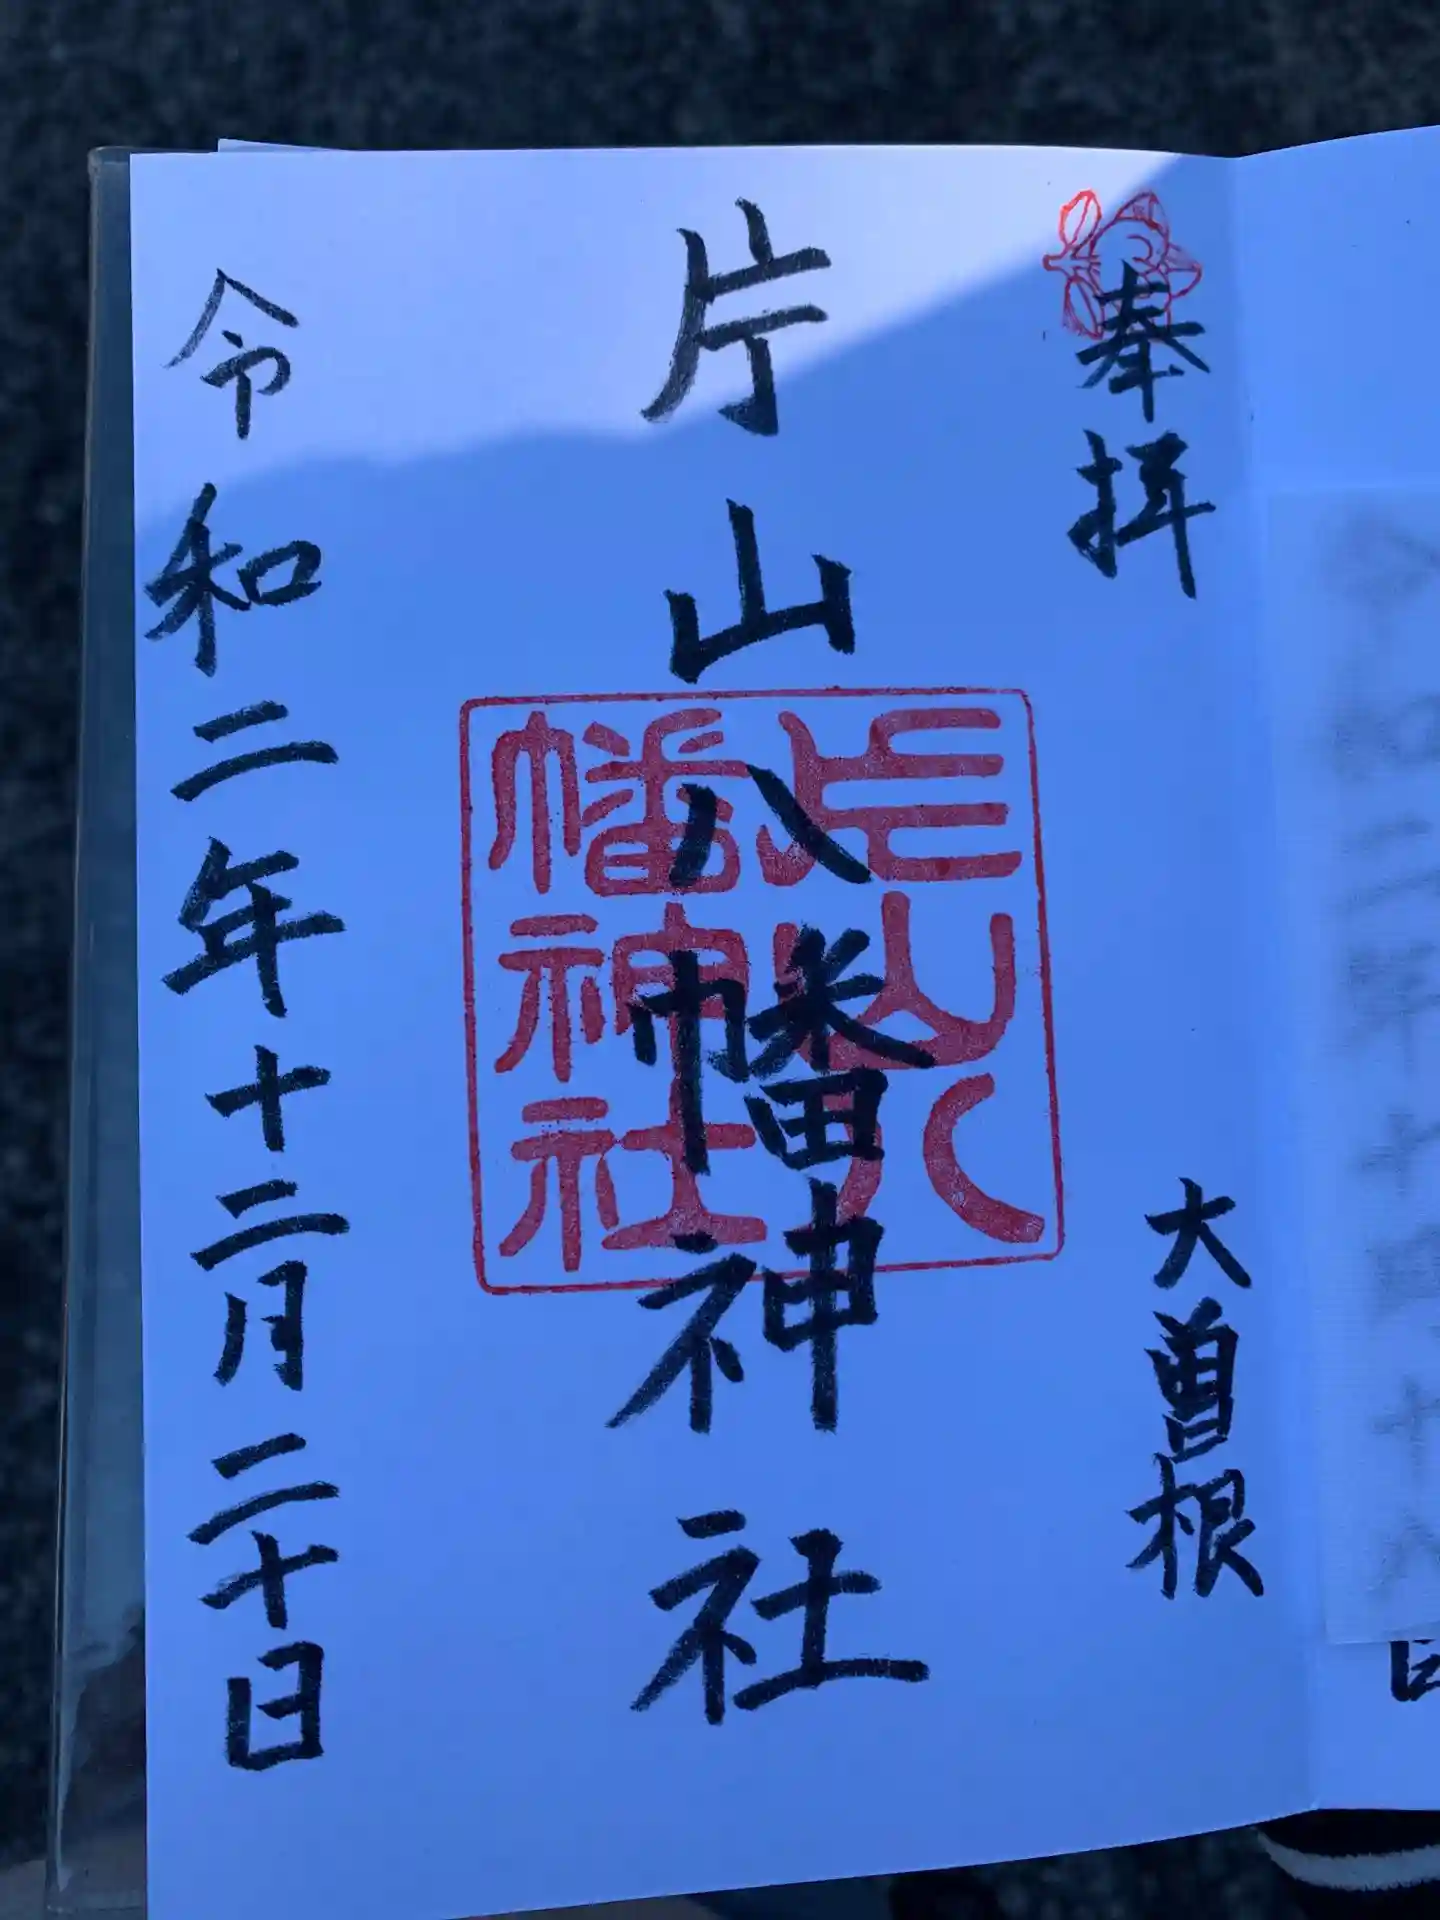 奉拝
大曽根
片山八幡神社
片山八
幡神社
令和二年十二月二十日